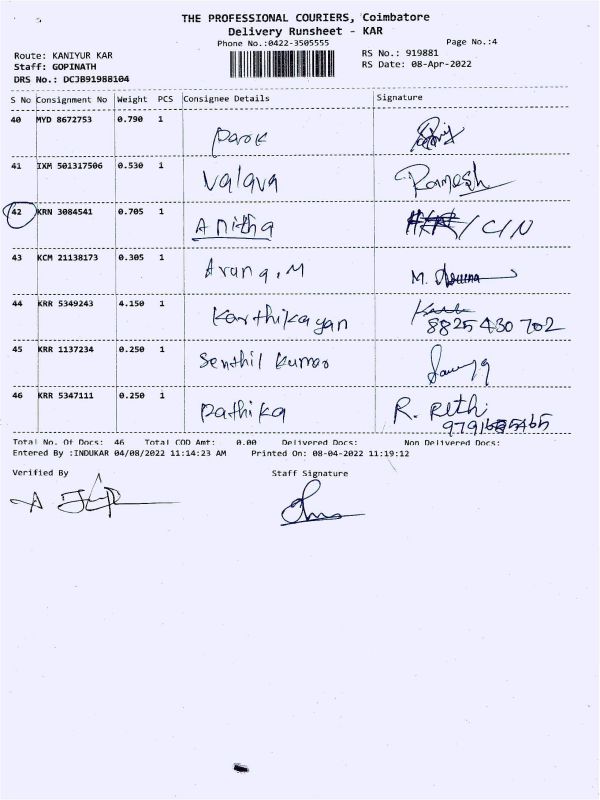 THE PROFESSIONAL COURIERS, Coimbatore
Delivery Runsheet - KAR
Phone No.:0422-3505555
Page No.:4
Route: KANIYUR KAR
RS No.: 919881
Staff: GOPINATH
RS Date: 08-Apr-2022
DRS No.: DCJB91988104
S No Consignment No Weight PCS Consignee Details Signature
40 MYD 8672753 0.790 1
41 IXM 501317506 0.530 1 Valava Ramesh
42 KRN 3084541 0.705 1 Anitha / C/N
43 KCM 21138173 0.305 1 Aruna, M M.
44 KRR 5349243 4.150 1 Karthikayan
8825430702
45 KRR 1137234 0.250 1 Senthil Kumar
46 KRR 5347111 0.250 1 Pathika R. Rethi
Total No. Of Docs: 46 Total COD Amt: 0.00 Delivered Docs: Non Delivered Docs:
Entered By :INDUKAR 04/08/2022 11:14:23 AM Printed On: 08-04-2022 11:19:12
Verified By Staff Signature